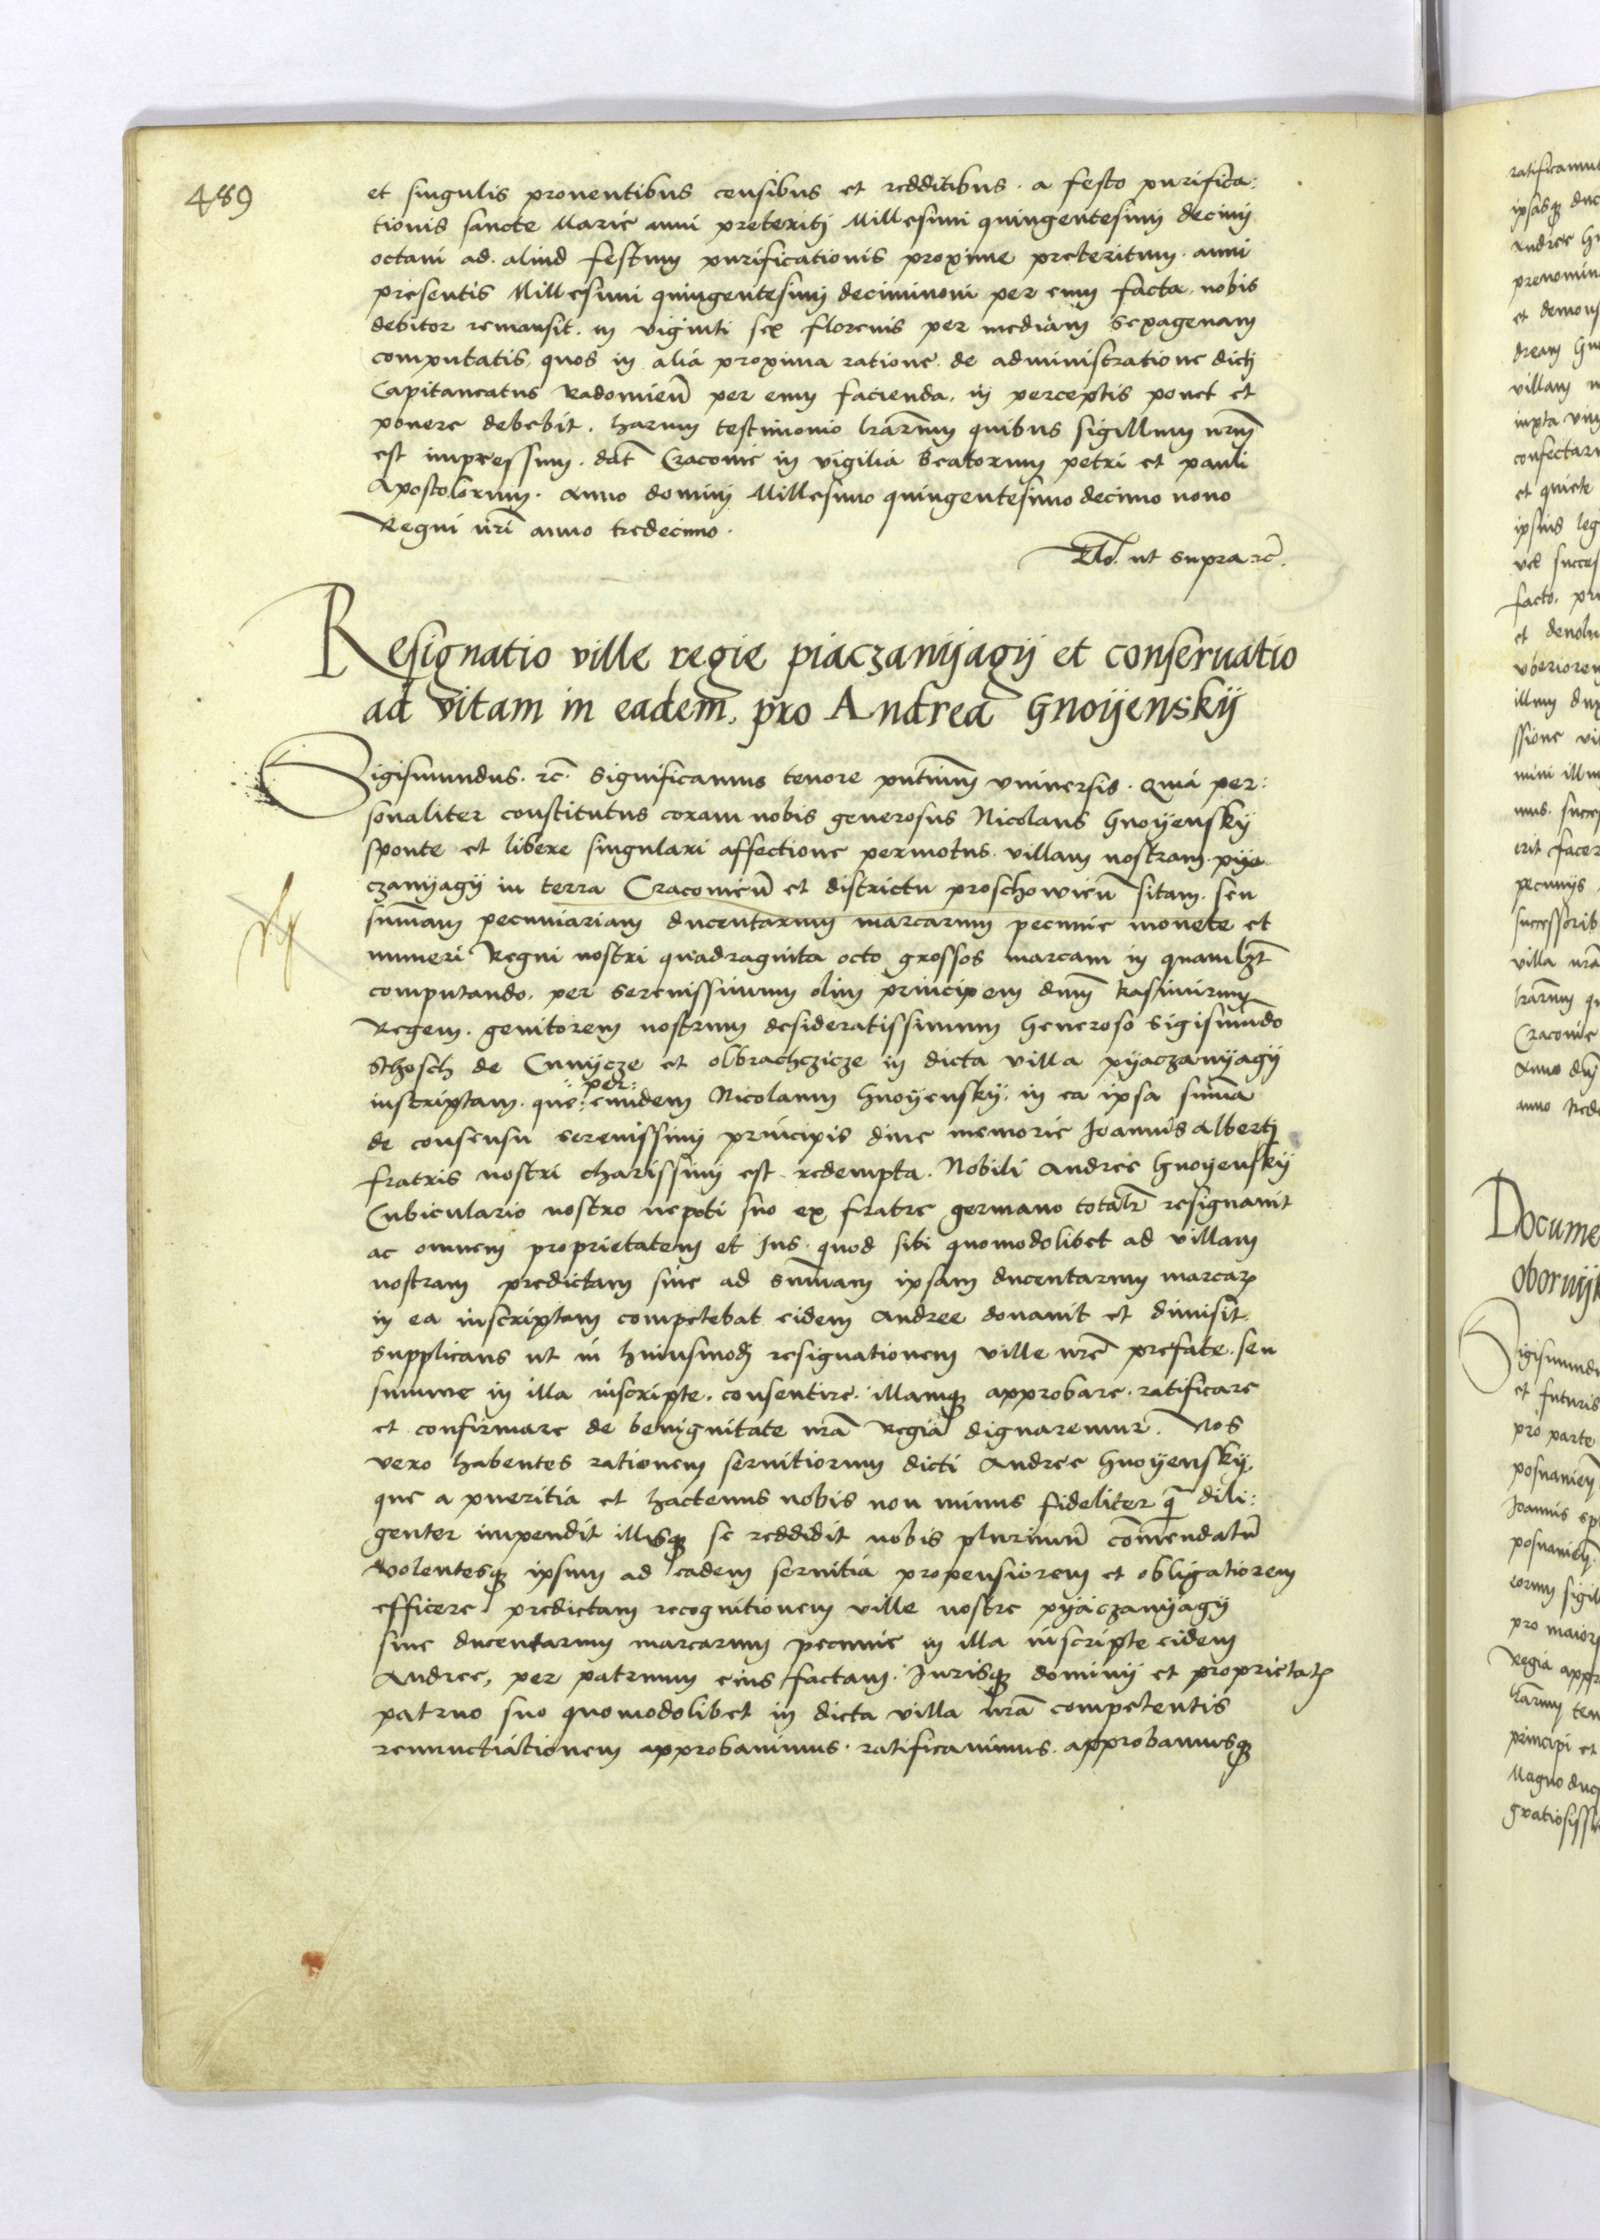 489
et singulis proventibus censibus et redditibus . a festo purifica:
tionis sancte Marie anni preteritj Millesimi quingentesimi decimj
octavi ad . aliud festum purificationis proxime preteritum . anni
presentis Millesimi quingentesimj deciminoni per eum facta . nobis
debitor remansit . in viginti sex florenis per mediam sexagenam
computatis, quos in alia proxima ratione . de administratione dicti
Capitaneatus Radomien̄ per eum facienda . in perceptis ponet et
ponere debebit . harum testimonio lr̄arum quibus sigillum nr̄um
est impressum . dat̄ Cracovie in vigilia Beatorum petri et pauli
Apostolorum . Anno dominj Millesimo quingentesimo decimo nono
Regni nr̄i anno tredecimo .
Rl̄o. ut supra rc̄.
Resignatio ville regie piaczanyagy et conservatio
ad vitam in eadem̄, pro Andrea Gnoyensky
Sigismundus . rc̄. Significamus tenore pn̄tium universis . Quia per:
sonaliter constitutus coram nobis generosus Nicolaus Gnoyensky
sponte et libere singulari affectione permotus . villam nostram . pya
czanyagy in terra Cracovien̄ et districtu proschovien̄ sitam . seu
sum̄am pecuniariam ducentarum marcarum pecunie monete et
numeri Regni nostri quadraginta octo grossos marcam in quamlꝫt
computando . per serenissimum olim principem dnm̄ kasimirum
Regem . genitorem nostrum desideratissimum Generoso Sigismūdo
Schosch de et olbrachczicze in dicta villa pyaczanyagy
inscriptam . que: per: eundem Nicolaum Gnoyensky: in ea ipsa sum̄a
de consensu serenissimj principis dive memorie Joannis Albertj
fratris nostri charissimj est . redempta . Nobili Andree Gnoyensky
Cubiculario nostro nepoti suo ex fratre germano total̄r resignavit
ac omnem proprietatem et Jus . quod sibi quomodolibet ad villam
nostram predictam sive ad sum̄am ipsam ducentarum marcarꝝ
in ea inscriptam competebat eidem Andree donavit et dimisit .
supplicans ut in huiusmodi resignationem ville nr̄e prefate . seu
summe in illa inscripte . consentire . illamqꝫ approbare . ratificare
et confirmare de benignitate nr̄a Regia dignaremur . Nos
vero habentes rationem servitiorum dicti Andree Gnoyensky,
que a pueritia et hactenus nobis non minus fideliter q̄ dili:
genter impendit illisqꝫ se reddidit nobis plurimū com̄endatū
volentesqꝫ ipsum ad eadem servitia propensiorem et obligatiorem
efficere predictam recognitionem ville nostre pyaczanyagy
sive ducentarum marcarum pecunie in illa inscripte eidem
Andree, per patruum eius factam . Jurisqꝫ dominij et proprietatꝭ
patruo suo quomodolibet in dicta villa nr̄a competentis
renunctiationem approbavimus . ratificavimus . approbamusqꝫ